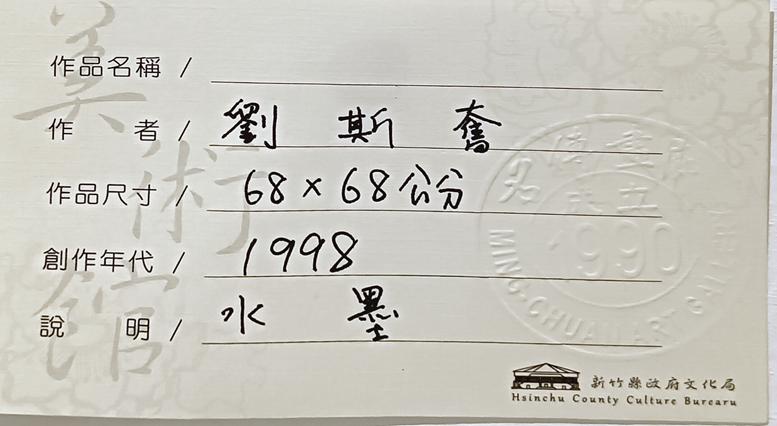 美術館
作品名稱 /
作 者 / 劉 斯 奮
作品尺寸 / 68 × 68 公分
創作年代 / 1998
說 明 / 水 墨
名傳畫廊
成立
1990
MING-CHUAN ART GALLERY
新竹縣政府文化局
Hsinchu County Culture Burearu